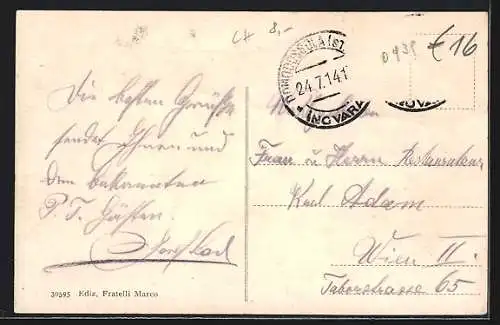 CH 8,-
0435
€16
DOMODOSSOLA (ST
24.7.14.1
* (NOVARA
(NOVARA
Die besten Grüsse
sendet Ihnen und
den bekannten
P. T. Gästen.
Josef
Frau u Herrn Restaurateur
Karl Adam
Wien II.
Taborstrasse 65
30595 Ediz. Fratelli Marco